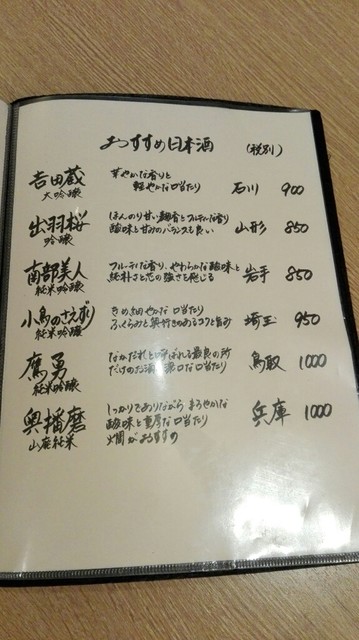 おすすめ日本酒 (税別)
吉田蔵 華やかな香りと
大吟醸 軽やかな口当たり 石川 900
出羽桜 ほんのり甘い麹香とフルーティな香り
吟醸 酸味と甘みのバランスも良い 山形 850
南部美人 フルーティな香り、やわらかな酸味と
純米吟醸 純朴さと芯の強さを感じる 岩手 850
小鳥のさえずり きめ細やかな口当たり
純米吟醸 ふくらみと奥行きのあるコクと旨み 埼玉 950
鷹勇 なかだれと呼ばれる最良の所
純米吟醸 だけのお酒 口な口当たり 鳥取 1000
奥播磨 しっかりでありながらまろやかな
山廃純米 酸味と重厚な口当たり 兵庫 1000
燗がおすすめ